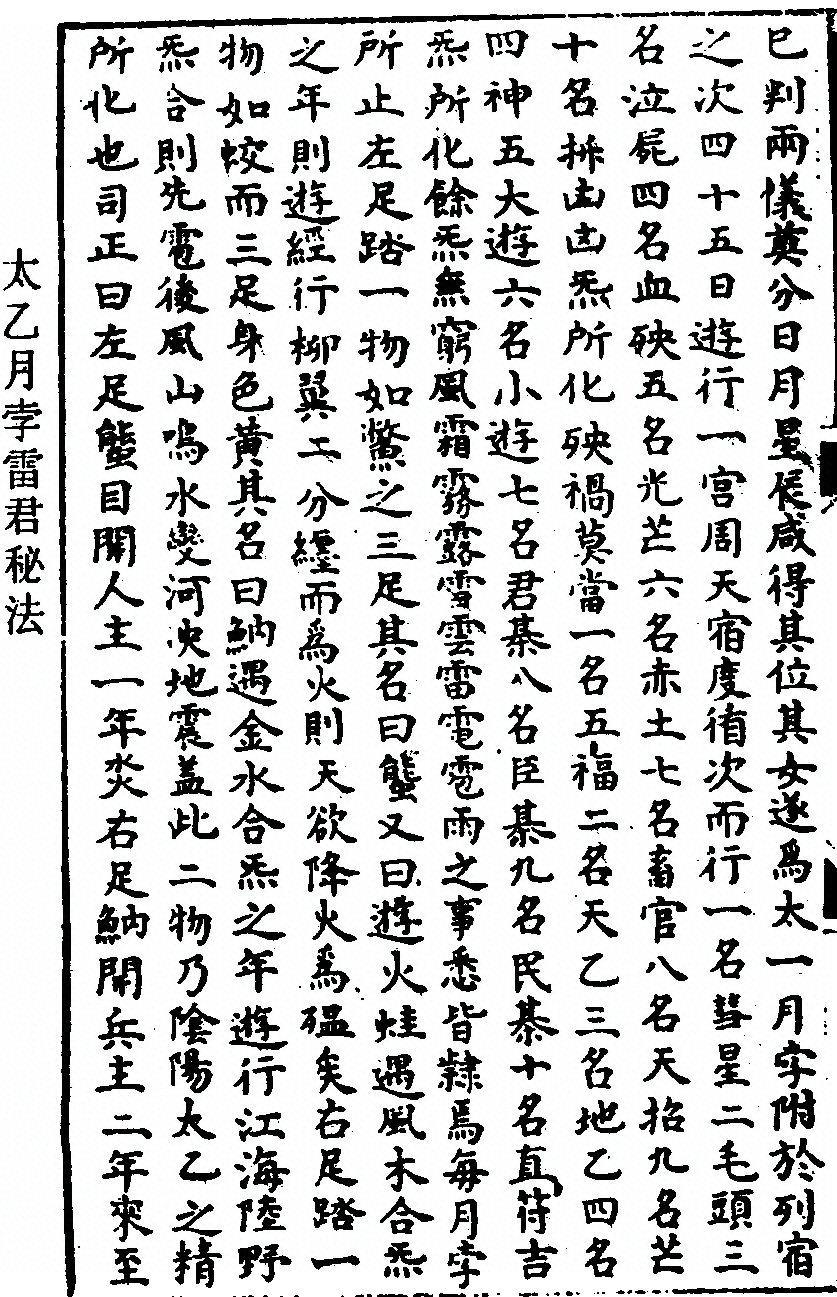 已判兩儀奠分日月星辰咸得其位其女遂爲太一月孛附於列宿
之次四十五日遊行一宮周天宿度循次而行一名彗星二毛頭三
名泣屍四名血殃五名光芒六名赤土七名畜官八名天掐九名芒
十名拚凶凶炁所化殃禍莫當一名五福二名天乙三名地乙四名
四神五大遊六名小遊七名君棊八名臣棊九名民棊十名直符吉
炁所化餘炁無窮風霜霧露雪雲雷電雹雨之事悉皆隸焉每月孛
所止左足踏一物如鱉之三足其名曰䗩又曰遊火蛙遇風木合炁
之年則遊經行柳翼二分纏而爲火則天欲降火爲殟矣右足踏一
物如蛟而三足身色黃其名曰魶遇金水合炁之年遊行江海陸野
炁合則先雹後風山鳴水變河決地震蓋此二物乃陰陽太乙之精
所化也司正曰左足䗩目開人主一年災右足魶開兵主二年來至
太乙月孛雷君秘法